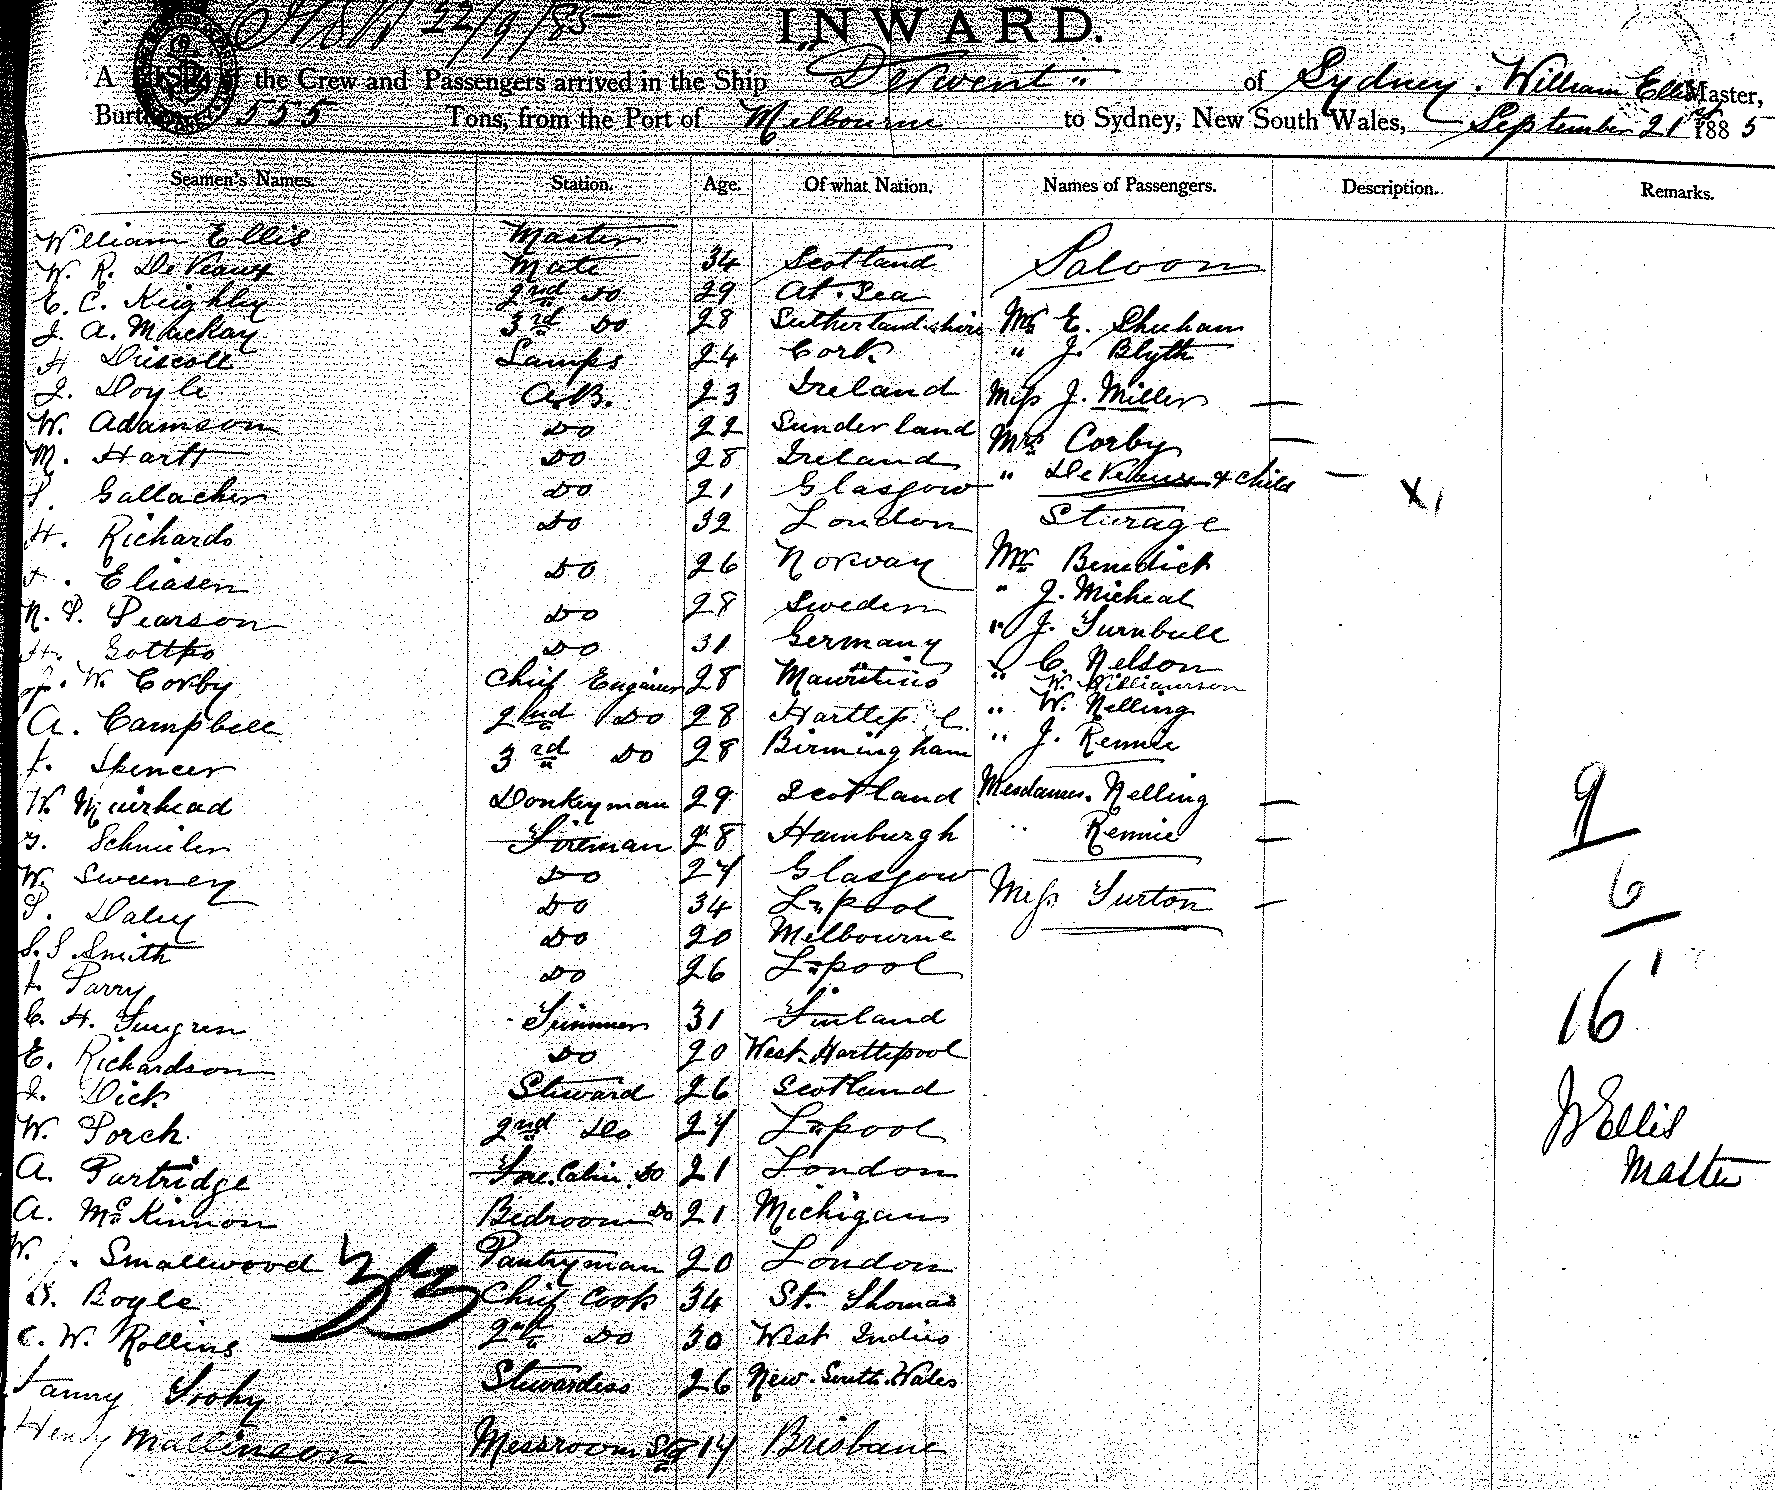 22/9/85
INWARD.
A the Crew and Passengers arrived in the Ship "Derwent" of Sydney. William Ellis Master,
Burthen 555 Tons, from the Port of Melbourne to Sydney, New South Wales, September 21st 1885
Seamen's Names. Station. Age. Of what Nation. Names of Passengers. Description. Remarks.
William Ellis Master 34 Scotland Saloon
W. R. De Veaux Mate 29 At Sea
E. C. Keighley 2nd Do 28 Sutherlandshire Mr E. Shuham
J. A. Mackay 3rd Do 24 Cork " J. Blyth
H Driscoll Lamps 23 Ireland Miss J. Miller —
J. Doyle A.B. 22 Sunderland Mrs Corby —
W. Adamson Do 28 Ireland " De Veaux & child —
M. Hartt Do 21 Glasgow X 1
Gallacher Do 32 London Sturage
H. Richards Do 26 Norway Mr Benedick
Eliasen Do 28 Sweden " J. Micheal
N. P. Pearson Do 31 Germany " J. Turnbull
H. Gottko Do 28 Mauritius " C. Nelson
W. Corby Chief Engineer 28 " W. Williamson
A. Campbell 2nd Do 28 Birmingham " W. Nelling
J. Spencer 3rd Do 29 Scotland " J. Rennie
W. Muirhead Donkeyman 28 Hamburgh Mesdames. Nelling —
Schnieler Fireman 24 Glasgow " Rennie —
W Sweeney Do 34 L'pool Miss Turton —
P. Daley Do 20 Melbourne
S. S. Smith Do 26 L'pool
J. Parry Do 31 Finland
C. H. Trimmer 20 West Hartlepool
E. Richardson Do 26 Scotland
J. Dick Steward 24 L'pool
W. Porch 2nd Do 21 London
A. Partridge Fore Cabin Do 21 Michigan
A. McKinnon Bedroom Do 20 London
W. J. Smallwood Pantryman 34 St. Thomas
B. Boyle Chief Cook 30 West Indies
C. W. Rollins 2nd Do 26 New South Wales
Fanny Stewardess
Henry Mallinson Messroom Std 14 Brisbane
9
6
1
16
W Ellis
Master